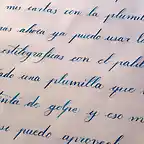 mis cartas con la plumill
as ahora ya puedo usar l
estilográficas con el palill
ado una plumilla que
tinta de golpe y eso m
se puedo aprovech